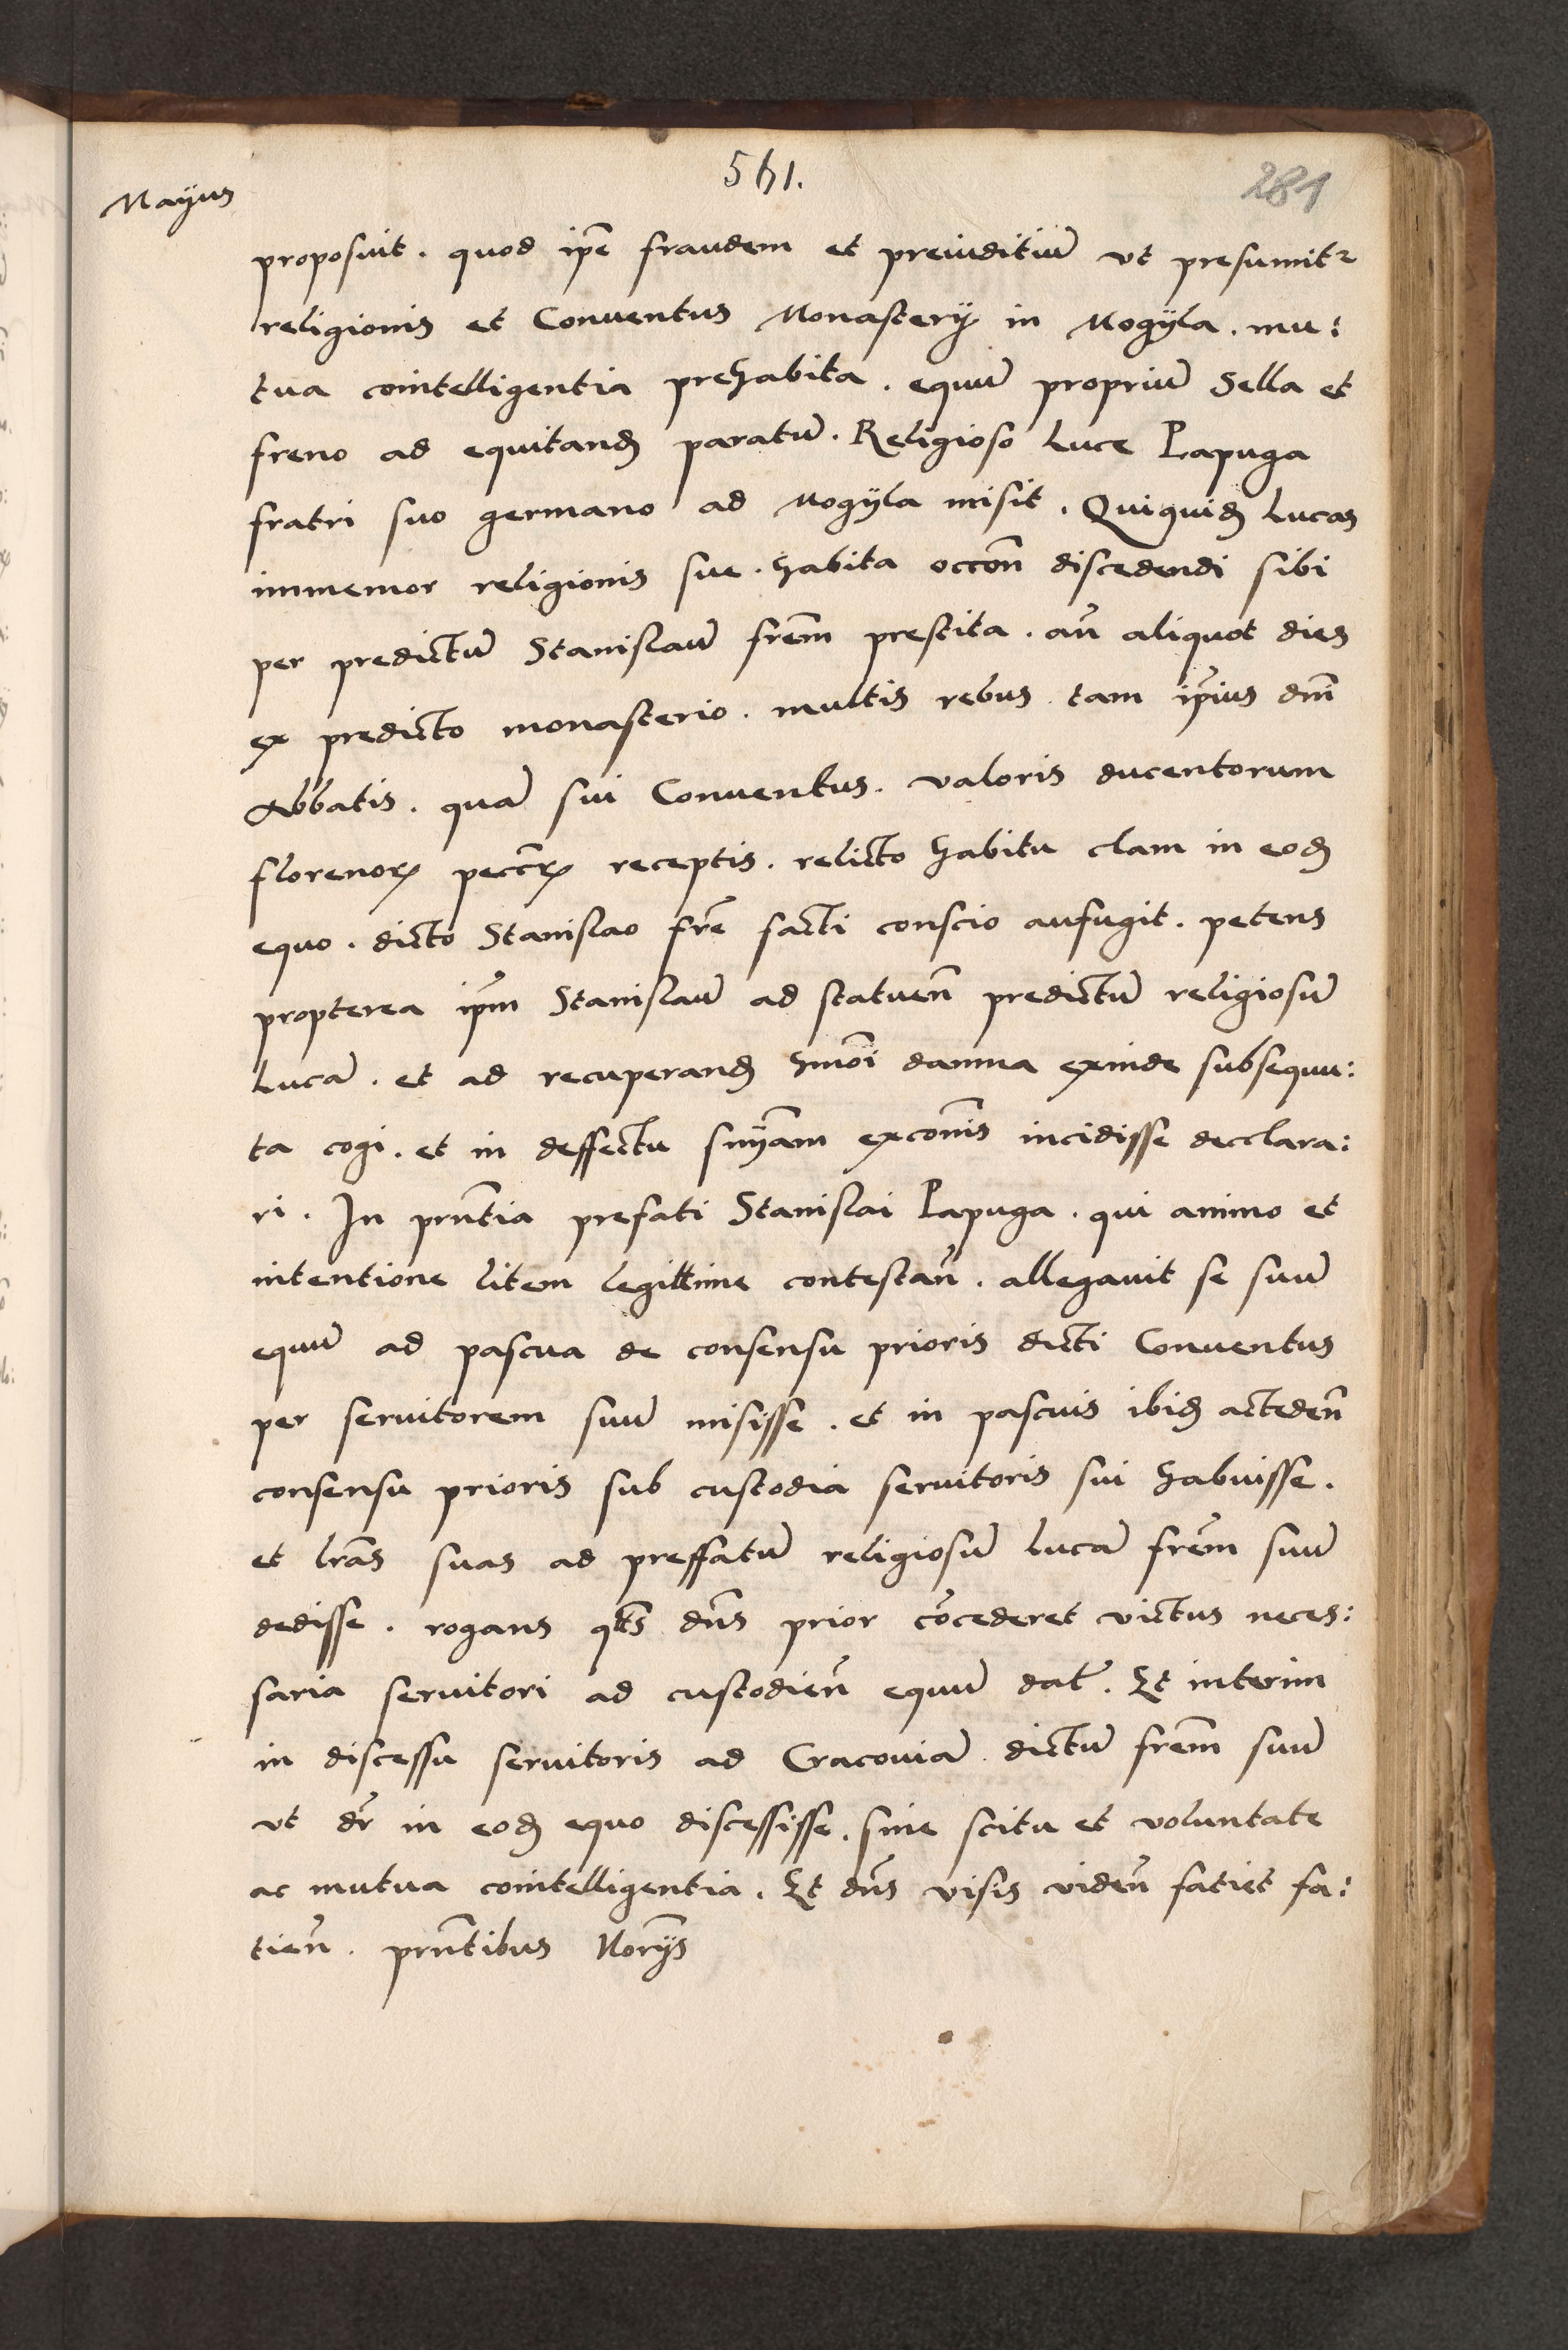 Mayus
561.
281
proposuit. quod ip̄e fraudem et preiuditiū ut presumitr
religionis et Conuentus Monastery in Mogyla. mu:
tua cointelligentia prehabita. equū propriū Sella et
freno ad equitand̄ paratū. Religioso Luce Papuga
fratri suo germano ad Mogyla misit. Quiquid̄ Lucas
immemor religionis sue. habita occōn discedendi sibi
per predictū Stanislaū frēm prestita. an̄ aliquot dies
ex predicto monasterio. multis rebus tam ip̄ius dn̄i
Abbatis. quā sui Conuentus. valoris ducentorum
florenorꝝ pecc̄rꝝ receptis. relicto habitu clam in eod̄
equo. dicto Stanislao frē facti conscio aufugit. petens
propterea ip̄m Stanislaū ad statuen̄ predictū religiosū
Lucā. et ad recuperand̄ hmōi damna exinde subsequu:
ta cogi. et in deffectu snÿam excōnis incidisse decclara:
ri. In pn̄tia prefati Stanislai Papuga. qui animo et
intentione litem legittime contestan̄. allegauit se suū
equū ad pascua de consensu prioris dicti Conuentus
per seruitorem suū misisse. et in pascuis ibid̄ acteden̄
consensu prioris sub custodia seruitoris sui habuisse.
et lrās suas ad preffatū religiosū Lucā frēm suū
dedisse. rogans qt̄s dn̄s prior cōcederet victus neces:
saria seruitori ad custodien̄ equū dat̄. Et interim
in discessu seruitoris ad Cracouiā dictū frēm suū
ut dr̄ in eod̄ equo discessisse. sine scitu et voluntate
ac mutua cointelligentia. Et dn̄s visis viden̄ fatiet fa:
tien̄. prn̄tibus Norÿs